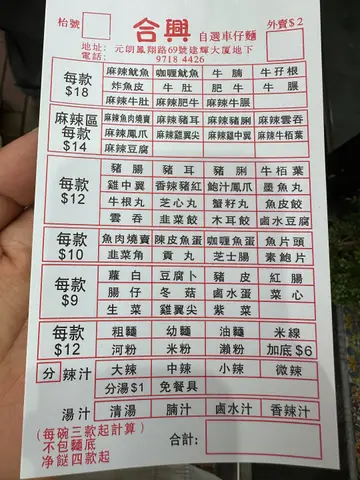 枱號 合興 自選車仔麵 外賣$2
地址: 元朗鳳翔路69號建輝大厦地下
電話: 9718 4426
每款 $18
麻辣魷魚 咖喱魷魚 牛腩 牛孖根
炸魚皮 牛肚 肥牛 牛脹
麻辣牛肚 麻辣肥牛 麻辣牛脹
麻辣區 每款 $14
麻辣魚肉燒賣 麻辣豬耳 麻辣豬脷 麻辣雲吞
麻辣鳳爪 麻辣雞翼尖 麻辣雞中翼 麻辣牛栢葉
麻辣豆腐
每款 $12
豬腸 豬耳 豬脷 牛栢葉
雞中翼 香辣豬紅 鮑汁鳳爪 墨魚丸
牛根丸 芝心丸 蟹籽丸 魚皮餃
雲吞 韭菜餃 木耳餃 鹵水豆腐
每款 $10
魚肉燒賣 陳皮魚蛋 咖喱魚蛋 魚片頭
韭菜角 貢丸 芝士腸 素鮑片
每款 $9
蘿白 豆腐卜 豬皮 紅腸
腸仔 冬菇 鹵水蛋 菜心
生菜 雞翼尖 紫菜
每款 $12
粗麵 幼麵 油麵 米線
河粉 米粉 瀨粉 加底$6
分 辣汁 大辣 中辣 小辣 微辣
分湯$1 免餐具
湯汁 清湯 腩汁 鹵水汁 香辣汁
(每碗三款起計算)
不包麵底
净餸四款起
合計: